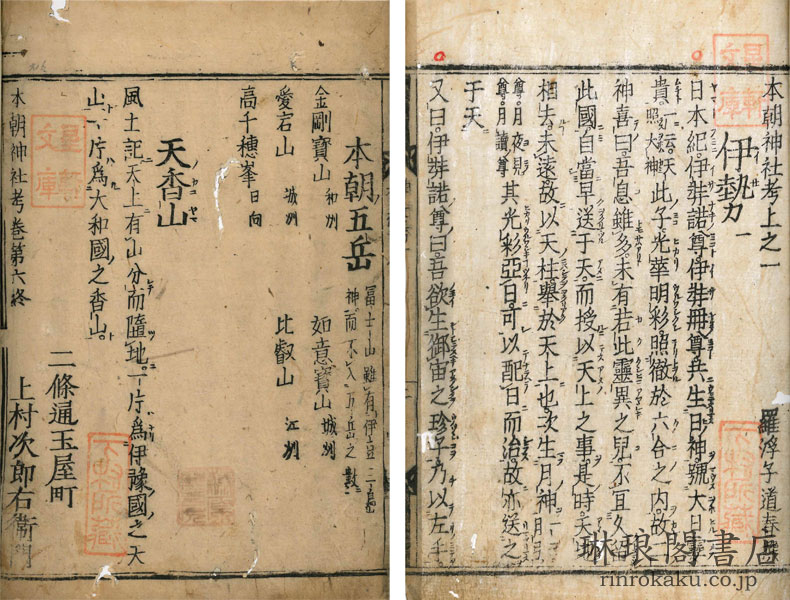 本朝神社考上之一
羅浮子道春
伊勢一
日本紀伊弉諾尊伊弉冊尊共生日神號大日孁
貴一云天照大神此子光華明彩照徹於六合之内故二
神喜曰吾息雖多未有若此靈異之兒不宜久留
此國自當早送于天而授以天上之事是時天地
相去未遠故以天柱舉於天上也次生月神一云月弓
尊月夜見尊月讀尊其光彩亞日可以配日而治故亦送之
于天
又曰伊弉諾尊曰吾欲生御宙之珍子乃以左手
本朝五岳 冨士山雖有伊豆三島神而不入五岳之數
金剛寶山和州 如意寶山城州
愛宕山城州 比叡山江州
高千穗峯日向
天香山
風土記天上有山分而隨地一片爲伊豫國之天
山一片爲大和國之香山
本朝神社考卷第六終
二條通玉屋町
上村次郎右衞門
琳琅閣書店
rinrokaku.co.jp